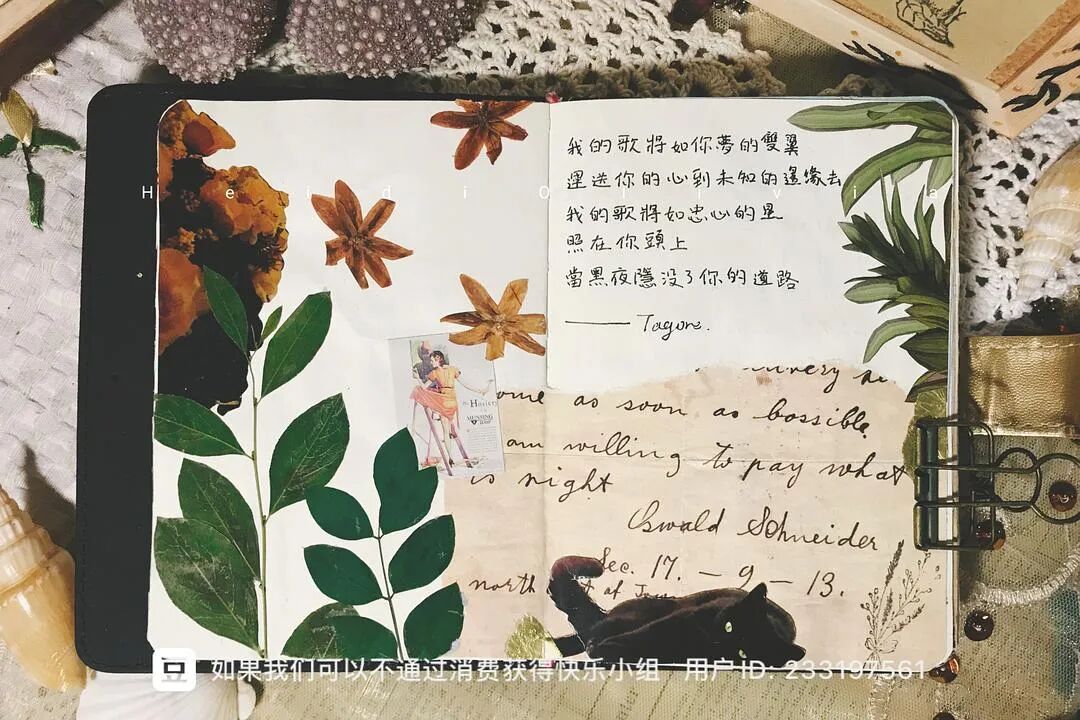 我的歌將如你夢的雙翼
運送你的心到未知的邊緣去
HeidiOlivia
我的歌將如忠心的星
照在你頭上
當黑夜隱没了你的道路
—— Tagore.
ome as soon as bossible.
am willing to pay what
is right
Oswald Schneider
Sec. 17. — 9 — 13.
north
MUNSING
WEAR
豆 如果我们可以不通过消费获得快乐小组 用户ID: 233197561